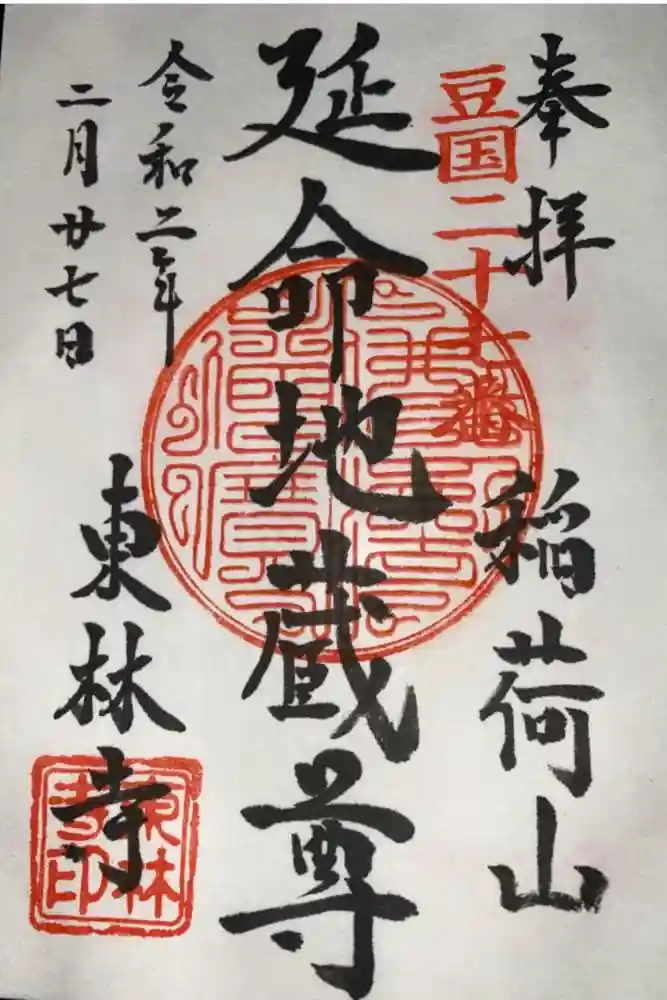 奉拝
豆国二十七番
稲荷山
延命地蔵尊
令和二年
二月廿七日
東林寺
東林寺印